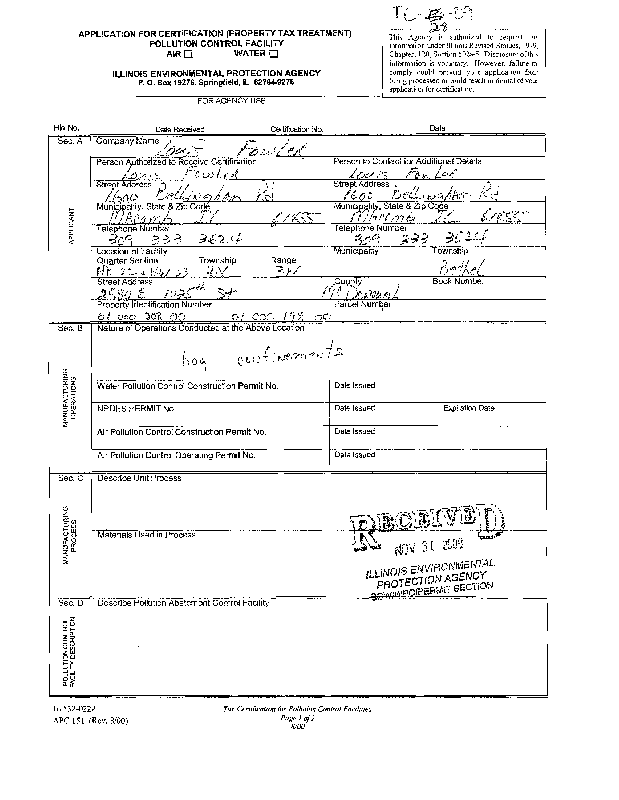 APPLICATION FOR CERTIFICATION (PROPERTY TAX TREATMENT)
POLLUTION CONTROL FACILITY
AIR WATER
ILLINOIS ENVIRONMENTAL PROTECTION AGENCY
P. O. Box 19276, Springfield, IL 62794-9276
FOR AGENCY USE
This Agency is authorized to request this
information under Illinois Revised Statutes, 1979,
Chapter 120, Section Disclosure of this
information is voluntary. However, failure to
comply could prevent your application from
being processed or could result in denial of your
application for certification.
File No. Date Received Certification No. Date
Sec. A Company Name
Louis Fowler
Person Authorized to Receive Certification Person to Contact for Additional Details
Louis Fowler Louis Fowler
Street Address Street Address
1600 Bellingham Rd 1600 Bellingham Rd
Municipality, State & Zip Code Municipality, State & Zip Code
Macomb IL 61455 Macomb IL 61455
Telephone Number Telephone Number
309 333 3624 309 333 3624
APPLICANT
Location of Facility Municipality Township
Quarter Section Township Range
Bethel
Street Address County Book Number
1025th St McDonough
Property Identification Number Parcel Number
Sec. B Nature of Operations Conducted at the Above Location
hog confinements
MANUFACTURING OPERATIONS
Water Pollution Control Construction Permit No. Date Issued
NPDES PERMIT No. Date Issued Expiration Date
Air Pollution Control Construction Permit No. Date Issued
Air Pollution Control Operating Permit No. Date Issued
Sec. C Describe Unit Process
MANUFACTURING PROCESS
Materials Used in Process
RECEIVED
NOV 2009
ILLINOIS ENVIRONMENTAL
PROTECTION AGENCY
SECTION
Sec. D Describe Pollution Abatement Control Facility
POLLUTION CONTROL FACILITY DESCRIPTION
APC 151 (Rev. 8/00)
For Certification for Pollution Control Facilities
Page 1 of 2
8/00